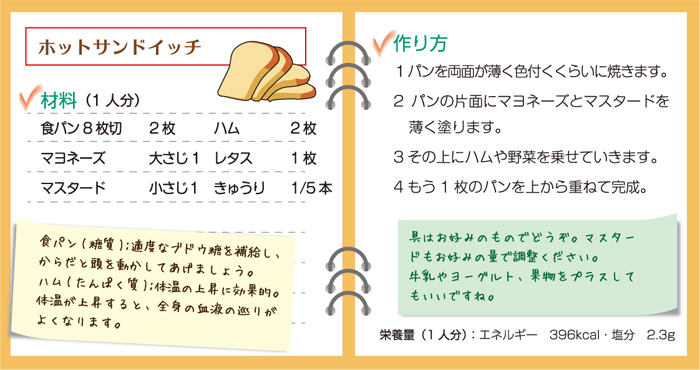 ホットサンドイッチ
材料（1人分）
食パン8枚切　2枚　ハム　2枚
マヨネーズ　大さじ1　レタス　1枚
マスタード　小さじ1　きゅうり　1/5本
食パン(糖質);適度なブドウ糖を補給し、
からだと頭を動かしてあげましょう。
ハム(たんぱく質);体温の上昇に効果的。
体温が上昇すると、全身の血液の巡りが
よくなります。
作り方
1パンを両面が薄く色付くくらいに焼きます。
2 パンの片面にマヨネーズとマスタードを
薄く塗ります。
3その上にハムや野菜を乗せていきます。
4もう1枚のパンを上から重ねて完成。
具はお好みのものでどうぞ。マスター
ドもお好みの量で調整ください。
牛乳やヨーグルト、果物をプラスして
もいいですね。
栄養量（1人分）：エネルギー　396kcal・塩分　2.3g